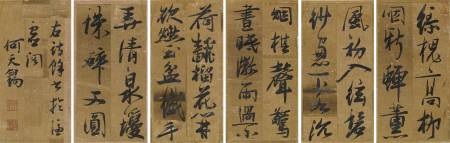 綠槐高柳
咽新蟬薰
風初入絃碧
紗窗下水沉
烟棋聲驚
晝眠微雨過小
荷翻榴花開
欲燃玉盆纖手
弄清泉瓊
珠碎又圓
右詩餘書於
何天